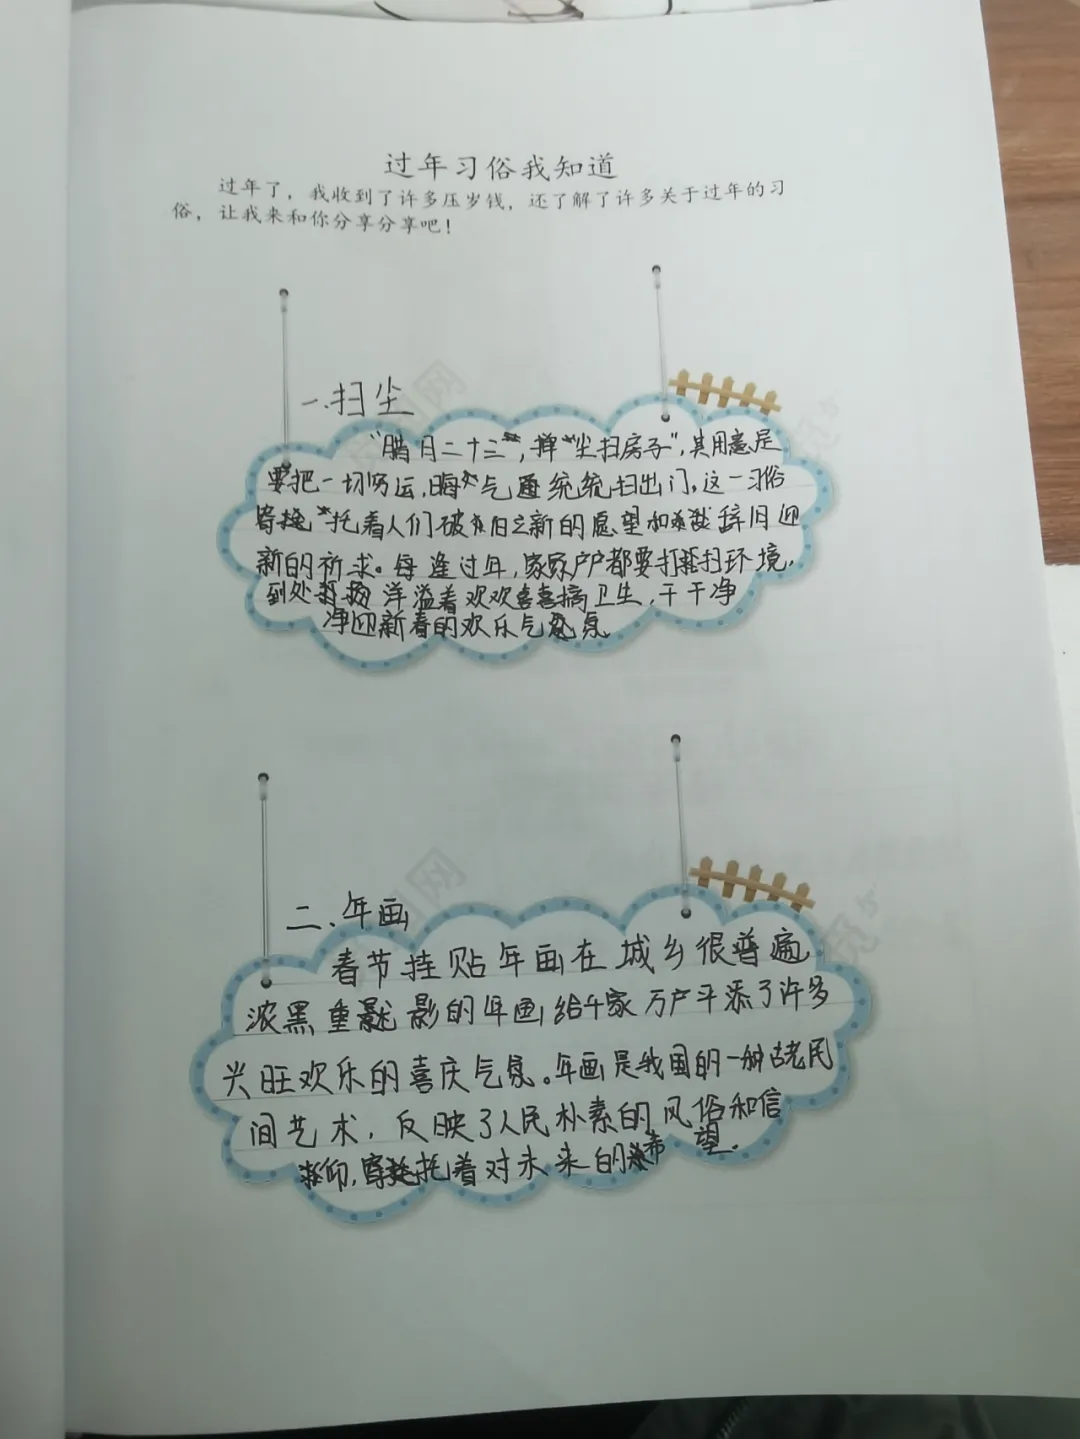 过年习俗我知道
过年了，我收到了许多压岁钱，还了解了许多关于过年的习
俗，让我来和你分享分享吧！
一.扫尘
"腊月二十三",掸尘扫房子",其用意是
要把一切穷运,晦气通统统扫出门,这一习俗
寄托着人们破旧立新的愿望和辞旧迎
新的祈求。每逢过年,家家户户都要打扫环境,
到处洋溢着欢欢喜喜搞卫生,干干净
净迎新春的欢乐气氛
二、年画
春节挂贴年画在城乡很普遍
浓黑重影的年画给千家万户平添了许多
兴旺欢乐的喜庆气氛。年画是我国的一种古老民
间艺术,反映了人民朴素的风俗和信
仰,寄托着对未来的希望.